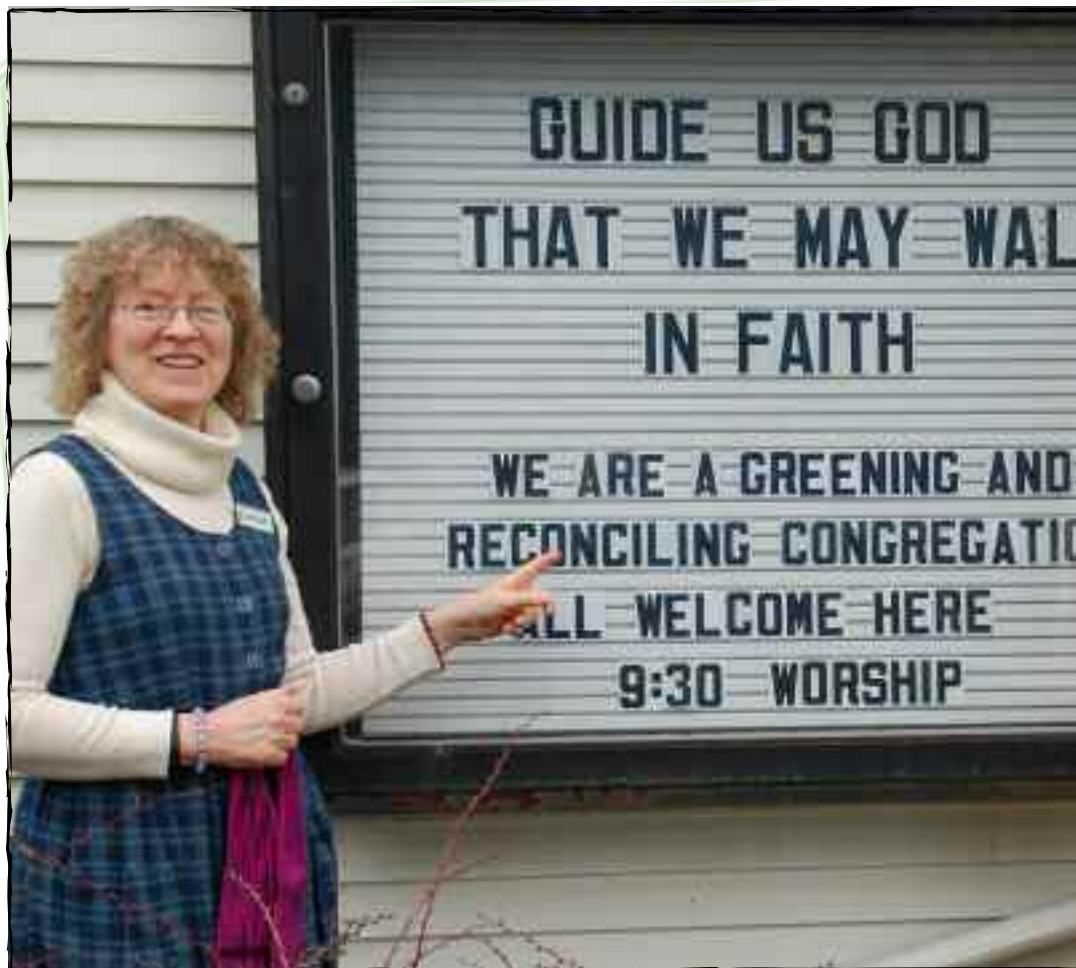 GUIDE US GOD
THAT WE MAY WAL
IN FAITH
WE ARE A GREENING AND
RECONCILING CONGREGATIO
ALL WELCOME HERE
9:30 WORSHIP